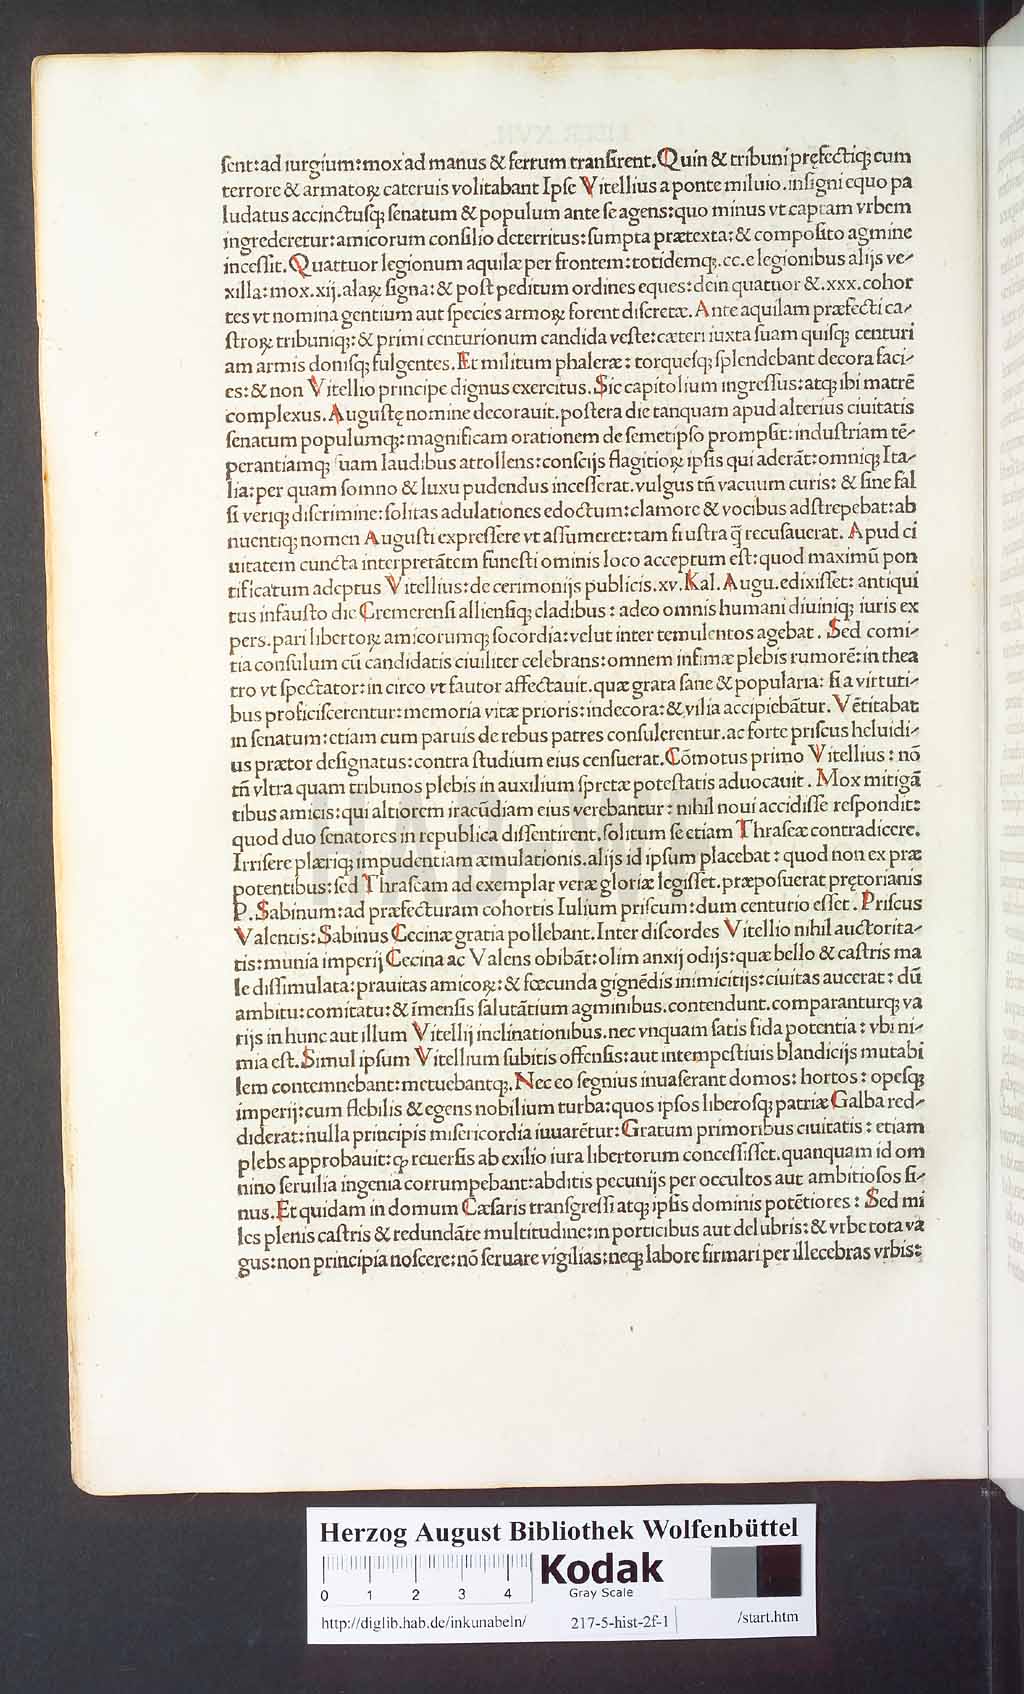 ſent:ad iurgium:mox ad manus & ferrum tranſirent.Quin & tribuni pręfectiqꝫ cum
terrore & armatoꝝ cateruis volitabant Ipſe Vitellius a ponte miluio.inſigni equo pa
ludatus accinctuſqꝫ ſenatum & populum ante ſe agens:quo minus vt captam vrbem
ingrederetur:amicorum conſilio deterritus:ſumpta prætexta:& compoſito agmine
inceſſit.Quattuor legionum aquilæ per frontem:totidemqꝫ.cc.e legionibus alijs ve⸗
xilla:mox.xij.alaꝝ ſigna:& poſt peditum ordines eques:dein quatuor &.xxx.cohor
tes vt nomina gentium aut ſpecies armoꝝ forent diſcretæ.Ante aquilam præfecti ca⸗
ſtroꝝ tribuniqꝫ:& primi centurionum candida veſte:cæteri iuxta ſuam quiſqꝫ centuri
am armis doniſqꝫ fulgentes.Et militum phaleræ:torqueſqꝫ ſplendebant decora faci⸗
es:& non Vitellio principe dignus exercitus.Sic capitolium ingreſſus:atqꝫ ibi matrē
complexus.Auguſtę nomine decorauit.poſtera die tanquam apud alterius ciuitatis
ſenatum populumqꝫ:magnificam orationem de ſemetipſo prompſit:induſtriam tē⸗
perantiamqꝫ ſuam laudibus attollens:conſcijs flagitioꝝ ipſis qui aderāt:omniqꝫ Ita⸗
lia:per quam ſomno & luxu pudendus inceſſerat.vulgus tñ vacuum curis:& ſine fal
ſi veriqꝫ diſcrimine:ſolitas adulationes edoctum:clamore & vocibus adſtrepebat:ab
nuentiqꝫ nomen Auguſti expreſſere vt aſſumeret:tam fruſtra q̄ recuſauerat. Apud ci
uitatem cuncta interpretātem funeſti ominis loco acceptum eſt:quod maximū pon
tificatum adeptus Vitellius:de cerimonijs publicis.xv.Kal.Augu.edixiſſet:antiqui
tus infauſto die Cremerenſi allienſiqꝫ cladibus:adeo omnis humani diuiniqꝫ iuris ex
pers.pari libertoꝝ amicorumqꝫ ſocordia:velut inter temulentos agebat. Sed comi⸗
tia conſulum cū candidatis ciuiliter celebrans:omnem infimæ plebis rumorē:in thea
tro vt ſpectator:in circo vt fautor affectauit.quæ grata ſane & popularia: ſi a virtuti⸗
bus proficiſcerentur:memoria vitæ prioris:indecora:& vilia accipiebātur.Vētitabat
in ſenatum:etiam cum paruis de rebus patres conſulerentur.ac forte priſcus heluidi⸗
us prætor deſignatus:contra ſtudium eius cenſuerat.Cōmotus primo Vitellius:nō
tñ vltra quam tribunos plebis in auxilium ſpretæ poteſtatis aduocauit. Mox mitigā
tibus amicis:qui altiorem iracūdiam eius verebantur:nihil noui accidiſſe reſpondit:
quod duo ſenatores in republica diſſentirent.ſolitum ſe etiam Thraſeæ contradicere.
Irriſere plæriqꝫ impudentiam æmulationis.alijs id ipſum placebat:quod non ex præ
potentibus:ſed Thraſeam ad exemplar veræ gloriæ legiſſet.præpoſuerat prętorianis
P.Sabinum:ad præfecturam cohortis Iulium priſcum:dum centurio eſſet. Priſcus
Valentis:Sabinus Cecinæ gratia pollebant.Inter diſcordes Vitellio nihil auctorita⸗
tis:munia imperij Cecina ac Valens obibāt:olim anxij odijs:quæ bello & caſtris ma
le diſſimulata:prauitas amicoꝝ:& fœcunda gignēdis inimicitijs:ciuitas auxerat:dū
ambitu:comitatu:& īmenſis ſalutātium agminibus.contendunt.comparanturqꝫ va
rijs in hunc aut illum Vitellij inclinationibus.nec vnquam ſatis fida potentia:vbi ni⸗
mia eſt.Simul ipſum Vitellium ſubitis offenſis:aut intempeſtiuis blandicijs mutabi
lem contemnebant:metuebantqꝫ.Nec eo ſegnius inuaſerant domos:hortos:opeſqꝫ
imperij:cum flebilis & egens nobilium turba:quos ipſos liberoſqꝫ patriæ Galba red⸗
diderat:nulla principis miſericordia iuuarētur:Gratum primoribus ciuitatis:etiam
plebs approbauit:ꝙ reuerſis ab exilio iura libertorum conceſſiſſet.quanquam id om
nino ſeruilia ingenia corrumpebant:abditis pecunijs per occultos aut ambitioſos ſi⸗
nus.Et quidam in domum Cæſaris tranſgreſſi atqꝫ ipſis dominis potētiores:Sed mi
les plenis caſtris & redundāte multitudine:in porticibus aut delubris:& vrbe tota va
gus:non principia noſcere:nō ſeruare vigilias:neqꝫ labore firmari per illecebras vrbis:
HAB WF
Herzog August Bibliothek Wolfenbüttel
Kodak
Gray Scale
0 1 2 3 4
http://diglib.hab.de/inkunabeln/ 217-5-hist-2f-1 /start.htm